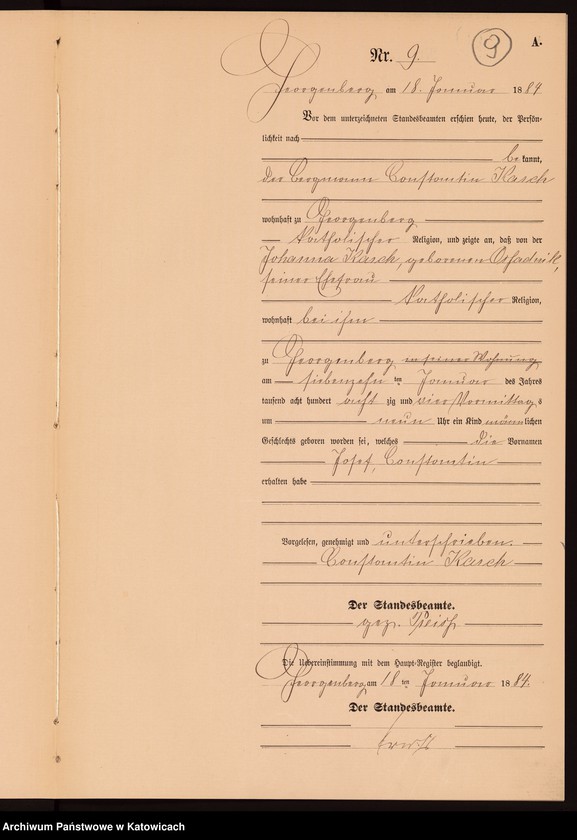 A.
Nr. 9.
9
Georgenberg am 18. Januar 1884
Vor dem unterzeichneten Standesbeamten erschien heute, der Persön-
lichkeit nach
be kannt,
der Bergmann Constantin Kasch
wohnhaft zu Georgenberg
katholischer Religion, und zeigte an, daß von der
Johanna Kasch, geborenen Ossadnik,
seiner Ehefrau
katholischer Religion,
wohnhaft bei ihm
zu Georgenberg in seiner Wohnung
am siebenzehn ten Januar des Jahres
tausend acht hundert acht zig und vier Vormittag s
um neun Uhr ein Kind männlichen
Geschlechts geboren worden sei, welches die Vornamen
Josef, Constantin
erhalten habe
Vorgelesen, genehmigt und unterschrieben.
Constantin Kasch
Der Standesbeamte.
gez.
Die Uebereinstimmung mit dem Haupt-Register beglaubigt.
Georgenberg am 18 ten Januar 1884.
Der Standesbeamte.
Archiwum Państwowe w Katowicach